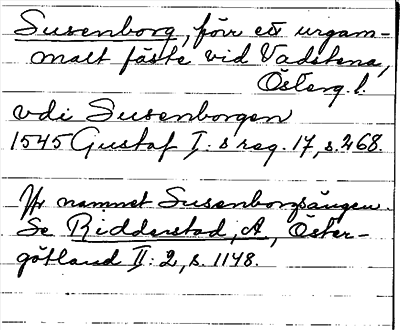 Susenborg, förr ett urgam-
malt fäste vid Vadstena,
Österg. l.
vdi Susenborgen
1545 Gustaf I:s reg. 17, s. 268.
Jfr namnet Susenborgsängen.
Se Ridderstad, A, Öster-
götland II: 2, s. 1148.